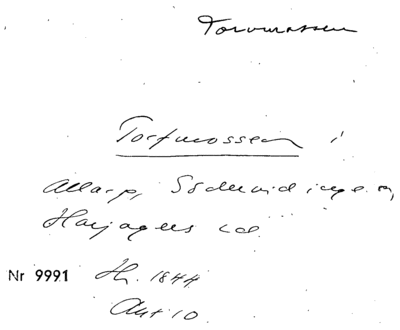 Torvmossen
Torfmossen i
Allarp, Södervidinge sn,
Harjagers hd.
Nr 9991 Hr. 1844
Akt 10